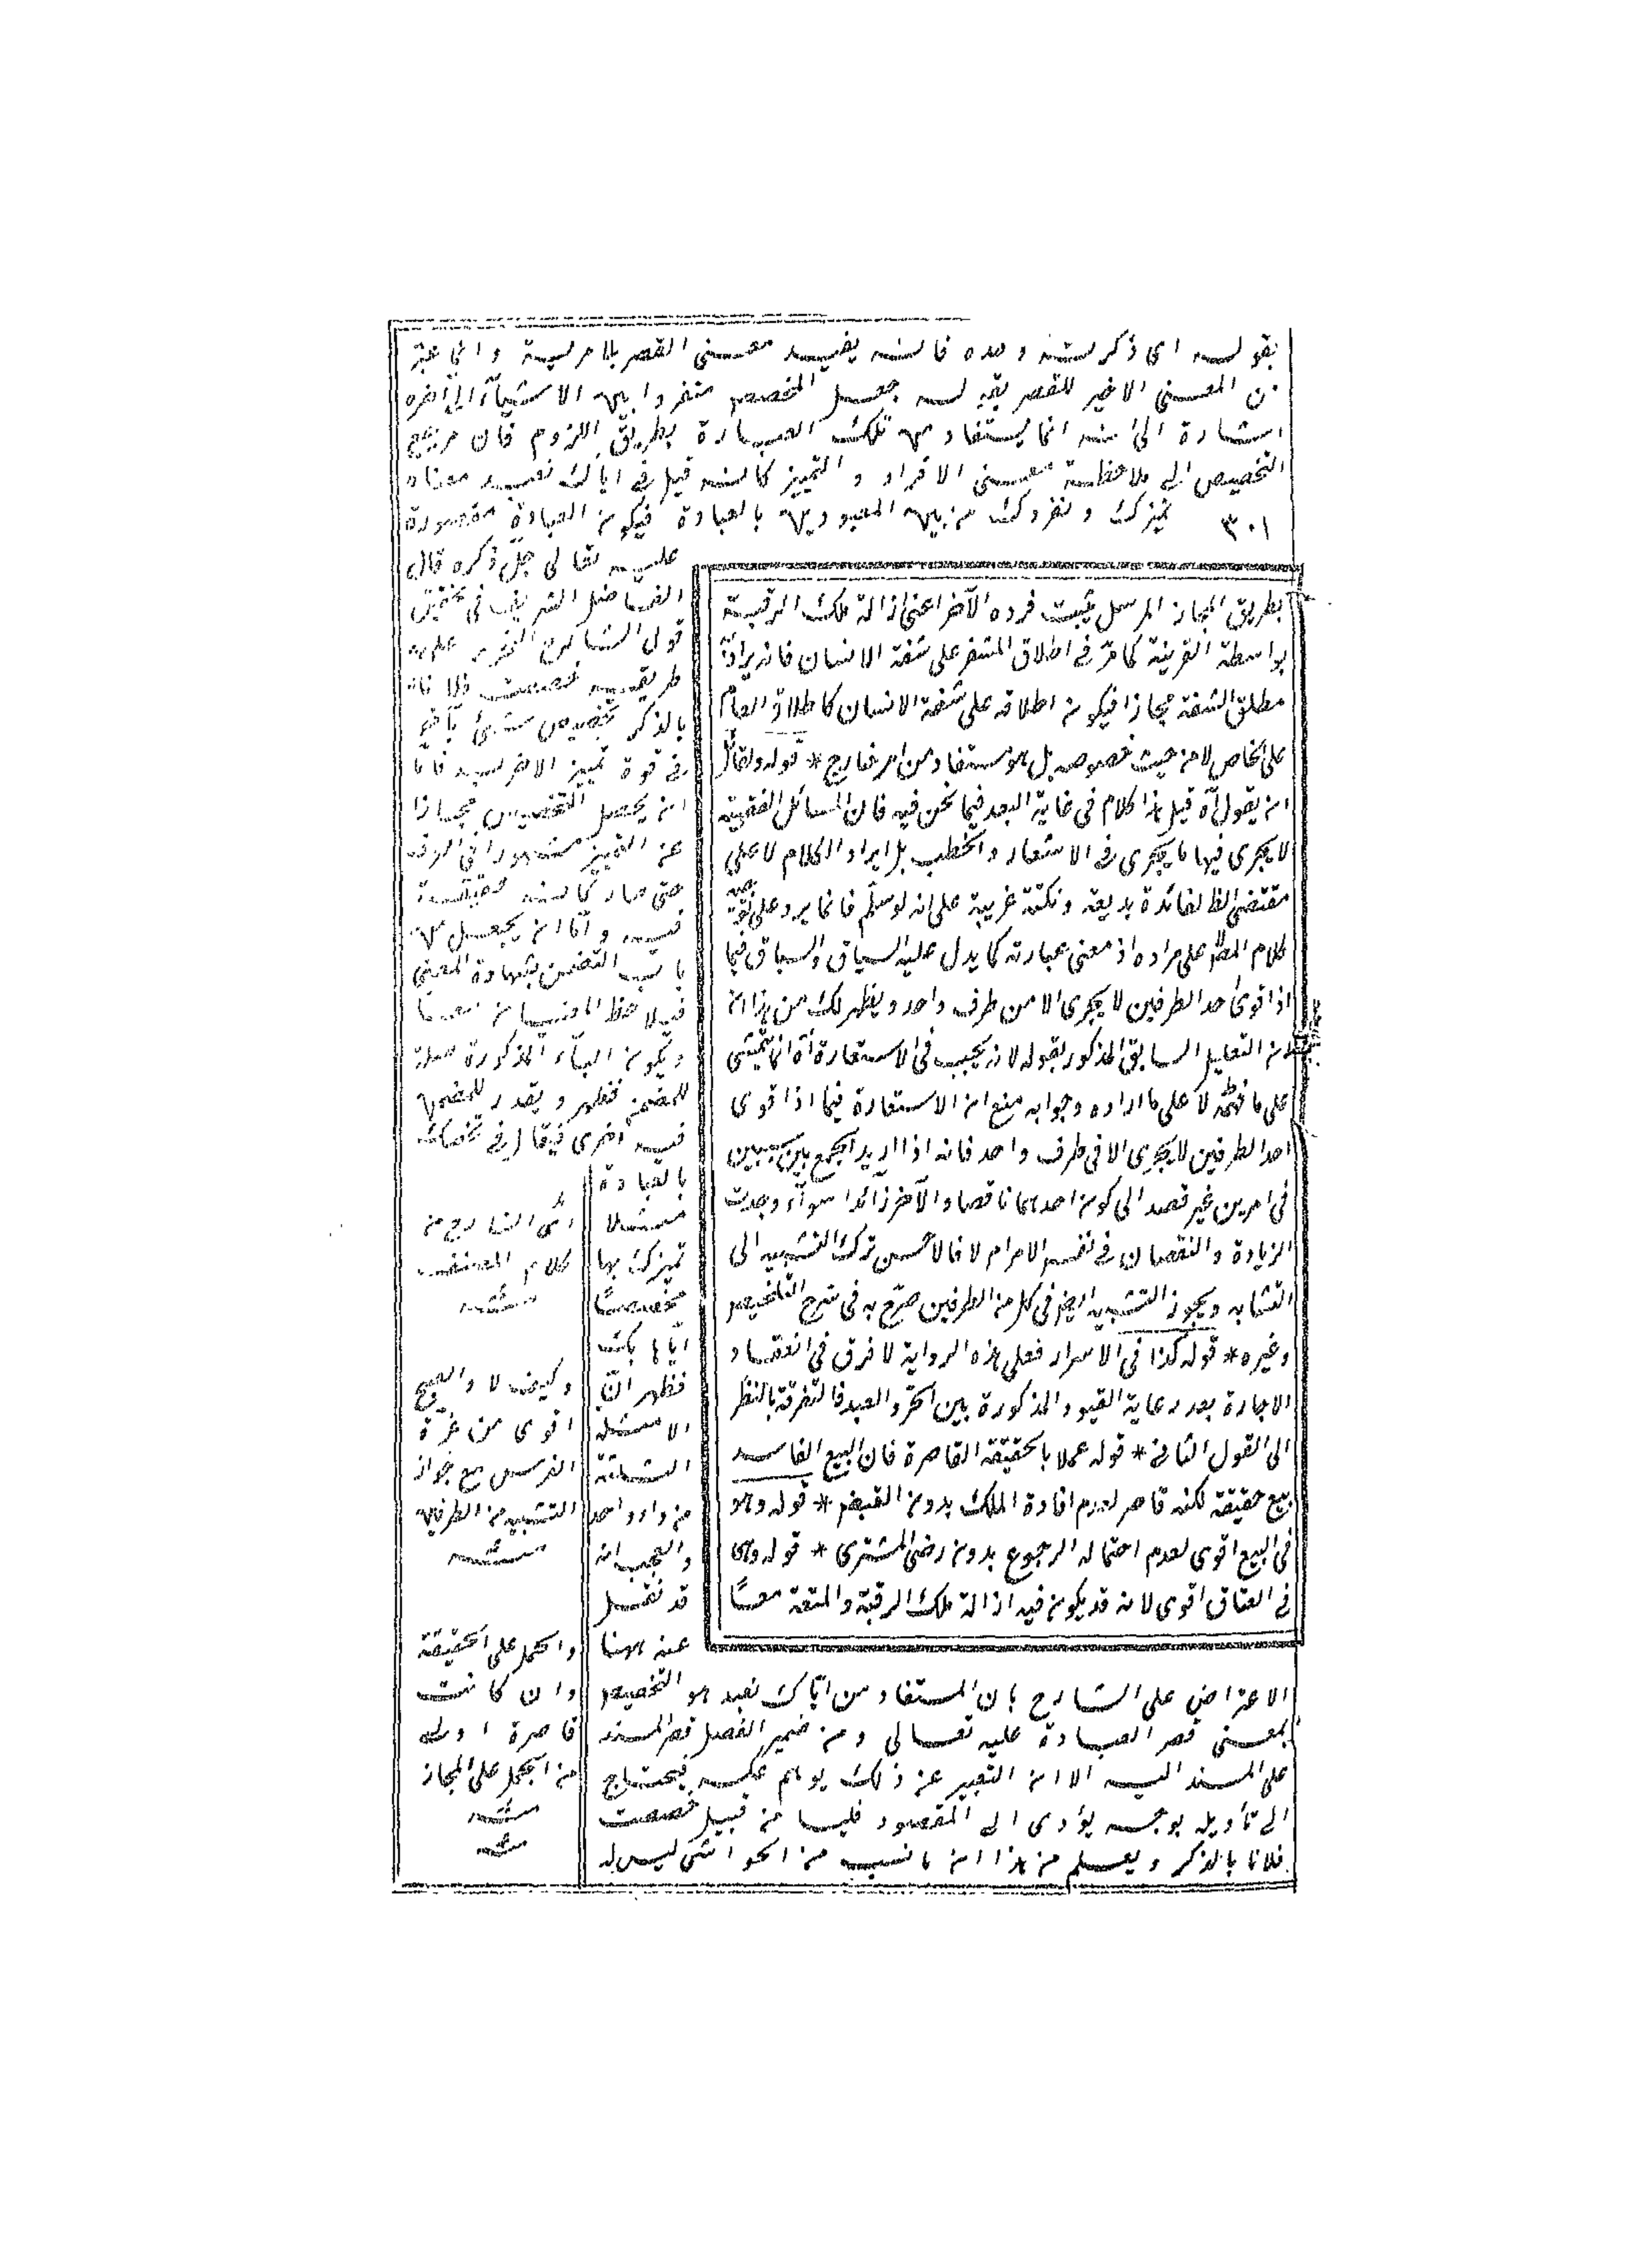 بقوله اى ذكرته وحده فانه يفيد معنى القصر بلا مرية وانما عبر
عن المعنى الاخير للقصر بقوله جعل المخصص منفردا بين الاشياء الى آخره
اشارة الى انه انما يستفاد من تلك العبارة بطريق اللزوم فان مرجع
التخصيص الى ملاحظة معنى الافراد والتمييز كانه قيل فى اياك نعبد معناه
٣٠١ نميزك ونفردك من بين المعبودين بالعبادة فيكون العبادة مقصورة
عليه تعالى جل ذكره قال
الفاضل الشريف فى تحقيق
قول الشارح
طريقة خصصت فلانا
بالذكر تخصيص شئ بآخر
فى قوة تمييز الآخر به فاما
ان يجعل التخصيص مجازا
عن التمييز مشهورا فى العرف
حتى صار كانه حقيقة
فيه واما ان يجعل من
باب التضمين بشهادة المعنى
فيلاحظ المعنيان معا
ويكون الباء المذكورة صلة
للمضمن فيه ويقدر للمضمن
فيه اخرى فيقال فى نخصك
بالعبادة
مثلا
نميزك بها
مخصصا
اياها بك
فظهر ان
الامثلة
الثلثة
من واد واحد
والعجب انه
قد نقل
عنه ههنا
الاعتراض على الشارح بان المستفاد من اياك نعبد هو التخصيص
بمعنى قصر العبادة عليه تعالى ومن ضمير الفصل قصر المسند
على المسند اليه الا ان التعبير عن ذلك يوهم عكسه فيحتاج
الى تأويله بوجه يؤدى الى المقصود فليسا من قبيل خصصت
فلانا بالذكر ويعلم من هذا ان ما نسب من الحواشى ليس له
بطريق المجاز المرسل يثبت فرده الآخر اعنى ازالة ملك الرقبة
بواسطة القرينة كما مر فى اطلاق المشفر على شفة الانسان فانه يراد به
مطلق الشفة مجازا فيكون اطلاقه على شفة الانسان كاطلاق العام
على الخاص لا من حيث خصوصه بل هو مستفاد من امر خارج * قوله ولقائل
ان يقول آه قيل هذا كلام فى غاية البعد فيما نحن فيه فان المسائل الفقهية
لا يجرى فيها ما يجرى فى الاشعار والخطب بل ايراد الكلام لا على
مقتضى الظ لفائدة بديعة ونكتة غريبة على انه لو سلم فانما يرد على
كلام المص على مراده اذ معنى عبارته كما يدل عليه السياق والسباق فيما
اذا قوى احد الطرفين لا يجرى الا من طرف واحد ويظهر لك من هذا ان
التعليل السابق المذكور بقوله لانه يجب فى الاستعارة آه انما يتمشى
على ما فهمه لا على ما اراده وجوابه منع ان الاستعارة فيما اذا قوى
احد الطرفين لا يجرى الا فى طرف واحد فانه اذا اريد الجمع بين شيئين
فى امر من غير قصد الى كون احدهما ناقصا والآخر زائدا سواء وجدت
الزيادة والنقصان فى نفس الامر ام لا فالاحسن ترك التشبيه الى
التشابه ويجوز التشبيه ايضا فى كل من الطرفين صرح به فى شرح التلخيص
وغيره * قوله كذا فى الاسرار فعلى هذه الرواية لا فرق فى انعقاد
الاجارة بعد رعاية القيود المذكورة بين الحر والعبد فالتفرقة بالنظر
الى القول الثانى * قوله عملا بالحقيقة القاصرة فان البيع الفاسد
بيع حقيقة لكنه قاصر لعدم افادة الملك بدون القبض * قوله وهو
فى البيع اقوى لعدم احتماله الرجوع بدون رضى المشترى * قوله وهى
فى العتاق اقوى لانه قد يكون فيه ازالة ملك الرقبة والمتعة معا
اى الشارح من
كلام المصنف
منه
وكيف لا والصبح
اقوى من غرة
الفرس مع جواز
التشبيه من الطرفين
منه
والحمل على الحقيقة
وان كانت
قاصرة اولى
من الحمل على المجاز
منه